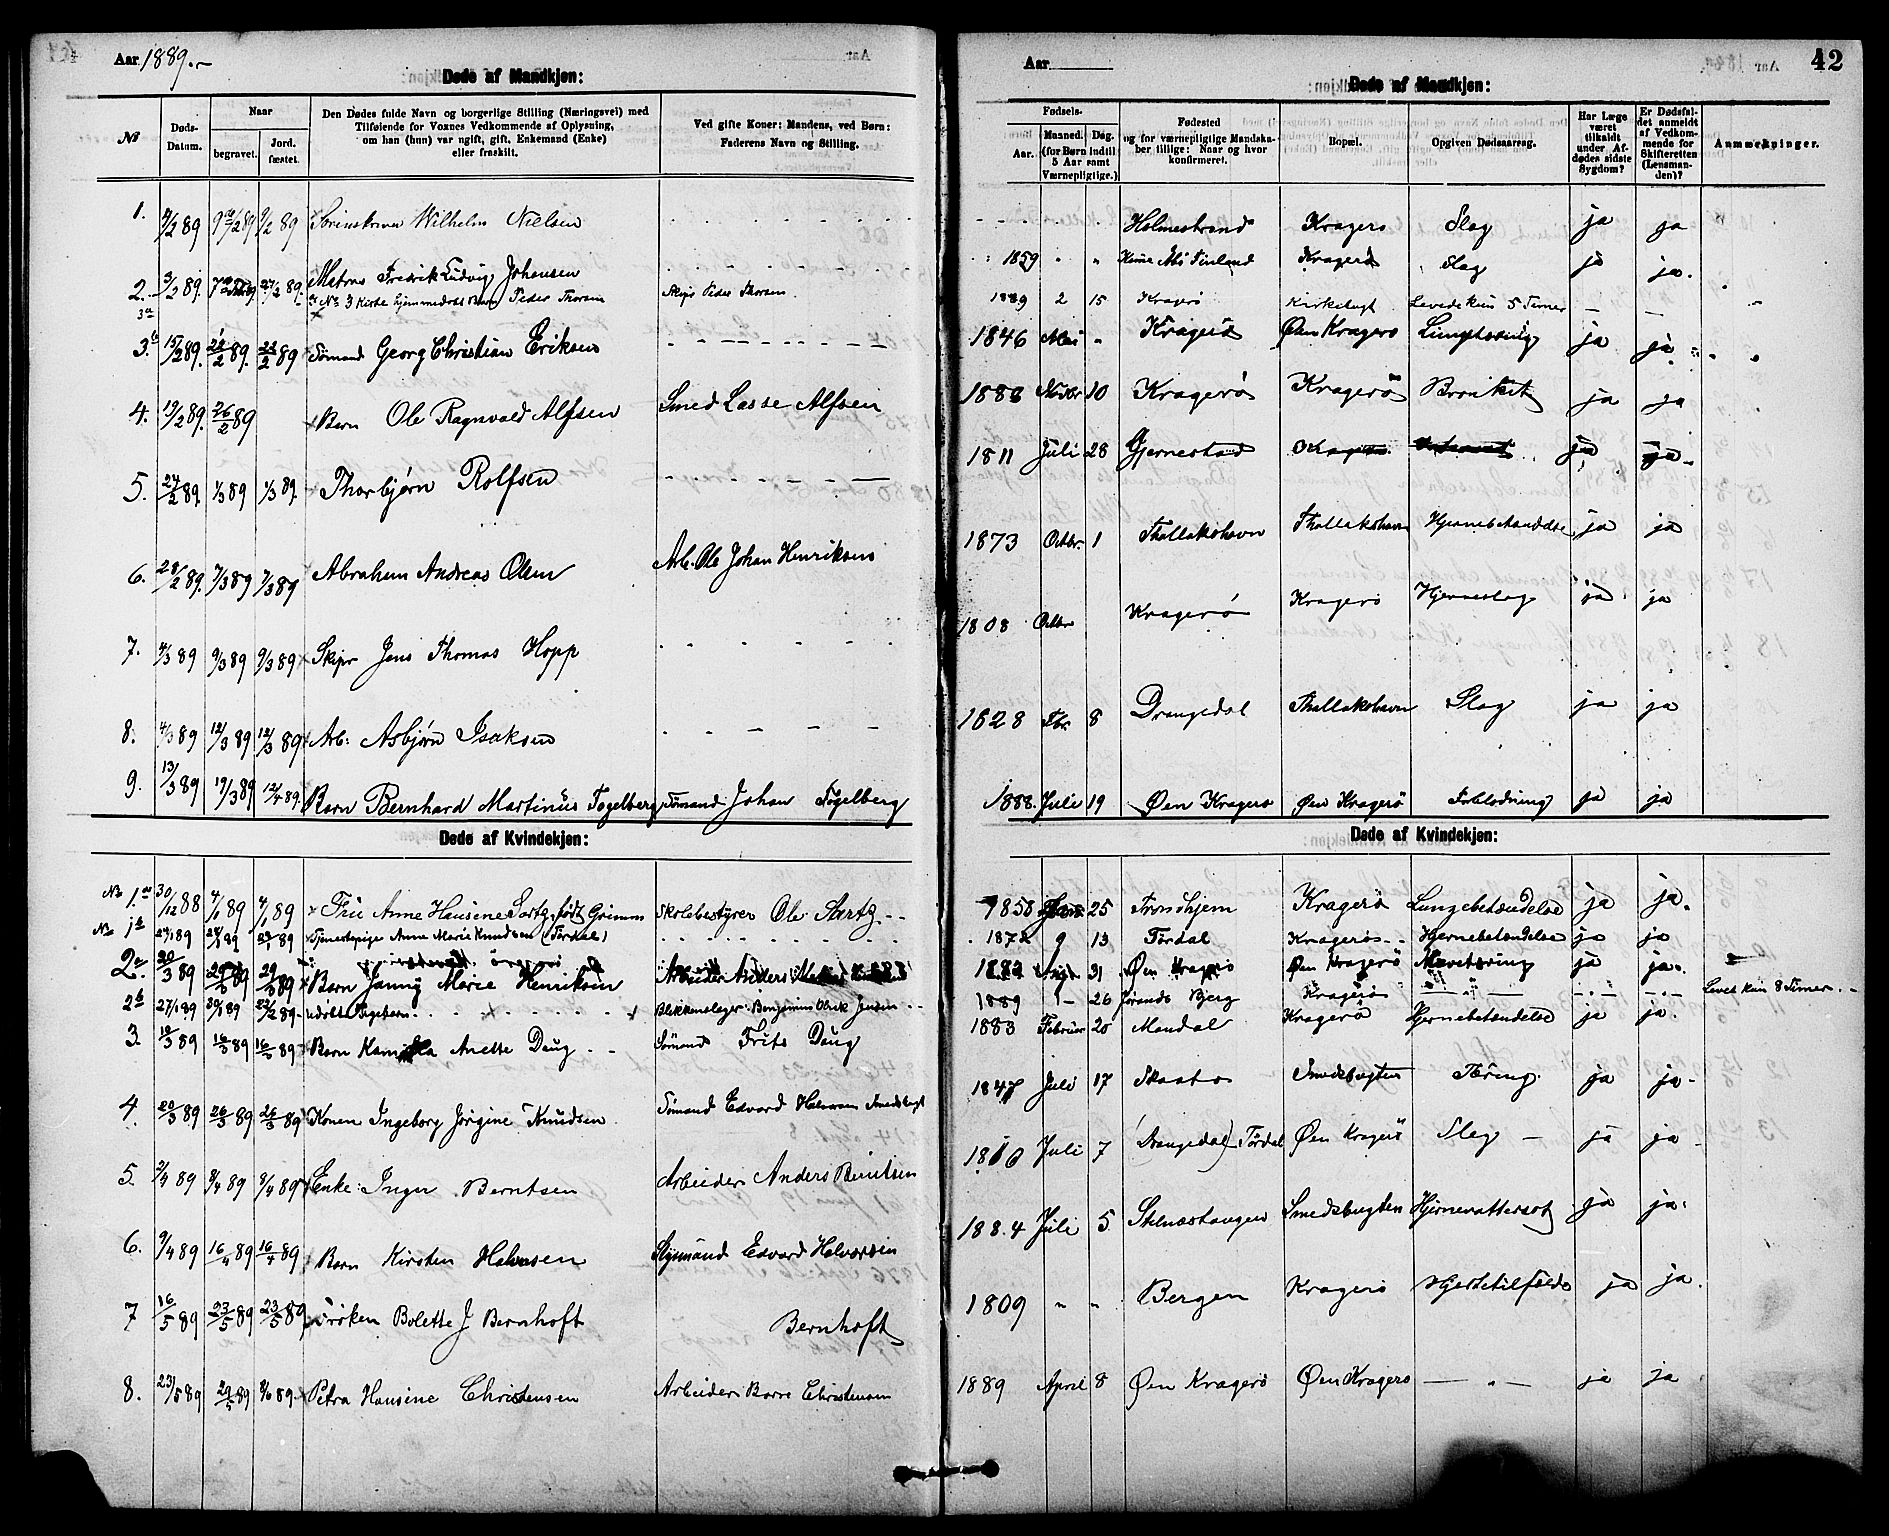 Aar 1889.-
Døde af Mandkjøn:
№
Døds-Datum.
Naar
begravet.
Jord. fæstet.
Den Dødes fulde Navn og borgerlige Stilling (Næringsvei) med
Tilføielse for Voxnes Vedkommende af Oplysning,
om han (hun) var ugift, gift, Enkemand (Enke)
eller fraskilt.
Ved gifte Koner: Mandens, ved Børn:
Faderens Navn og Stilling.
1. 9/2 89 Wilhelm Nielsen
2. 3/2 89. Matros Fredrik Ludvig Johansen
3a Peder Thorsen Skipr Peder Thorsen
3.b 15/2 89. 22/2 89 Sømand Georg Christian Eriksen
4. 19/2 89. 26/2 89 Barn Ole Ragnvald Alfsen Smed Lasse Alfsen
5. 24/2 89. 1/3 89 1/3 89. Thorbjørn Rolfsen
6. 28/2 89. 7/3 89 7/3 89 Abraham Andreas Olsen Arb. Ole Johan Henriksen
7. 4/3 89 9/3 89 9/3 89 Skipr Jens Thomas Hopp
8. 4/3 89 12/3 89 12/3 89 Arb: Asbjørn Isaksen
9. 13/3 89 19/3 89 12/4 89. Barn Bernhard Martinus Fogelberg Sømand Johan Fogelberg
Døde af Kvindekjøn:
No 1.a 30/12 88 4/1 89 4/1 89 Frue Anne Hansine Sortg, født Grimm Skolebestyrer Ole
No 1b Tjenestepige Anne Marie Knudsen (Tørdal)
2.a 20/3 89 29/3 89 29/3 89 Barn Janny Marie Henriksen Arbeider Anders
2b 27/1 89 30/1 89 22/2 89 udøbt Pigebarn Blikkenslager Benjamin Olrik Jensen
3. 10/3 89 16/3 89 16/3 89 Barn Kamilla Anette Daug Sømand Frits Daug
4. 20/3 89 26/3 89 26/3 89 Konen Ingeborg Jørgine Knudsen Sømand Edvard Halvorsen Smedsbugt
5. 2/4 89 8/4 89 8/4 89 Enke Inger Berntsen Arbeider Anders Berntsen
6. 9/4 89 16/4 89 16/4 89 Barn Kirsten Halvorsen Edvard Halvorsen
7 16/5 89 23/5 89 23/5 89 Frøken Bolette J Bernhoft Bernhoft
8. 23/5 89 29/5 89 Petra Hansine Christensen Arbeider Børre Christensen
Aar
42
Døde af Mandkjøn:
Fødsels-
Aar.
Maaned. Dag.
(for Børn indtil
5 Aar samt
Værnepligtige.)
Fødested
og for værnepligtige Mandska-
ber tillige: Naar og hvor
konfirmeret.
Bopæl.
Opgiven Dødsaarsag.
Har Læge
været
tilkaldt
under Af-
dødes sidste
Sygdom?
Er Dødsfal-
det anmeldt
af Vedkom-
mende for
Skifteretten
(Lensman-
den)?
Anmærkninger.
Holmestrand Kragerø Slag ja ja
1859 Finland Kragerø Slag ja ja.
1889 2 15 Kragerø Kirkebugt Levede kun 5 Timer
1846 Mai Kragerø Øen Kragerø ja ja
1888 10 Kragerø Kragerø Bronkit ja ja
1811 Juli 28 Gjernestad ja ja.
1873 Octbr. 1 Thallakshavn Thallakshavn Hjernebetændelse ja ja
1808 Octbr Kragerø Kragerø Hjerneslag ja ja
1828 Fbr. 8 Drangedal Thallakshavn Slag ja ja
1888. Juli 19 Øen Kragerø Øen Kragerø Forblødning ja ja
Døde af Kvindekjøn:
1858 25 Trondhjem Kragerø Lungebetændelse ja ja.
1872 9 13 Tørdal Kragerø Hjernebetændelse ja ja
31 Øen Kragerø Øen Kragerø ja ja.
1889 1 26 Bjerg Kragerø Levet kun 8 Timer.
1883 Februar 20 Mandal Kragerø Hjernebetændelse ja ja.
1847 Juli 17 Skaatø Smedsbugten Tæring ja ja.
1810 Juli 7 (Drangedal) Tørdal Øen Kragerø Slag ja ja
1884 Juli 5 Stilnæstangen Smedsbugten Hjernevattersot ja ja.
1809 " " Bergen Kragerø Hjertetilfælde ja ja.
1889 April 8 Øen Kragerø Øen Kragerø — " — ja ja